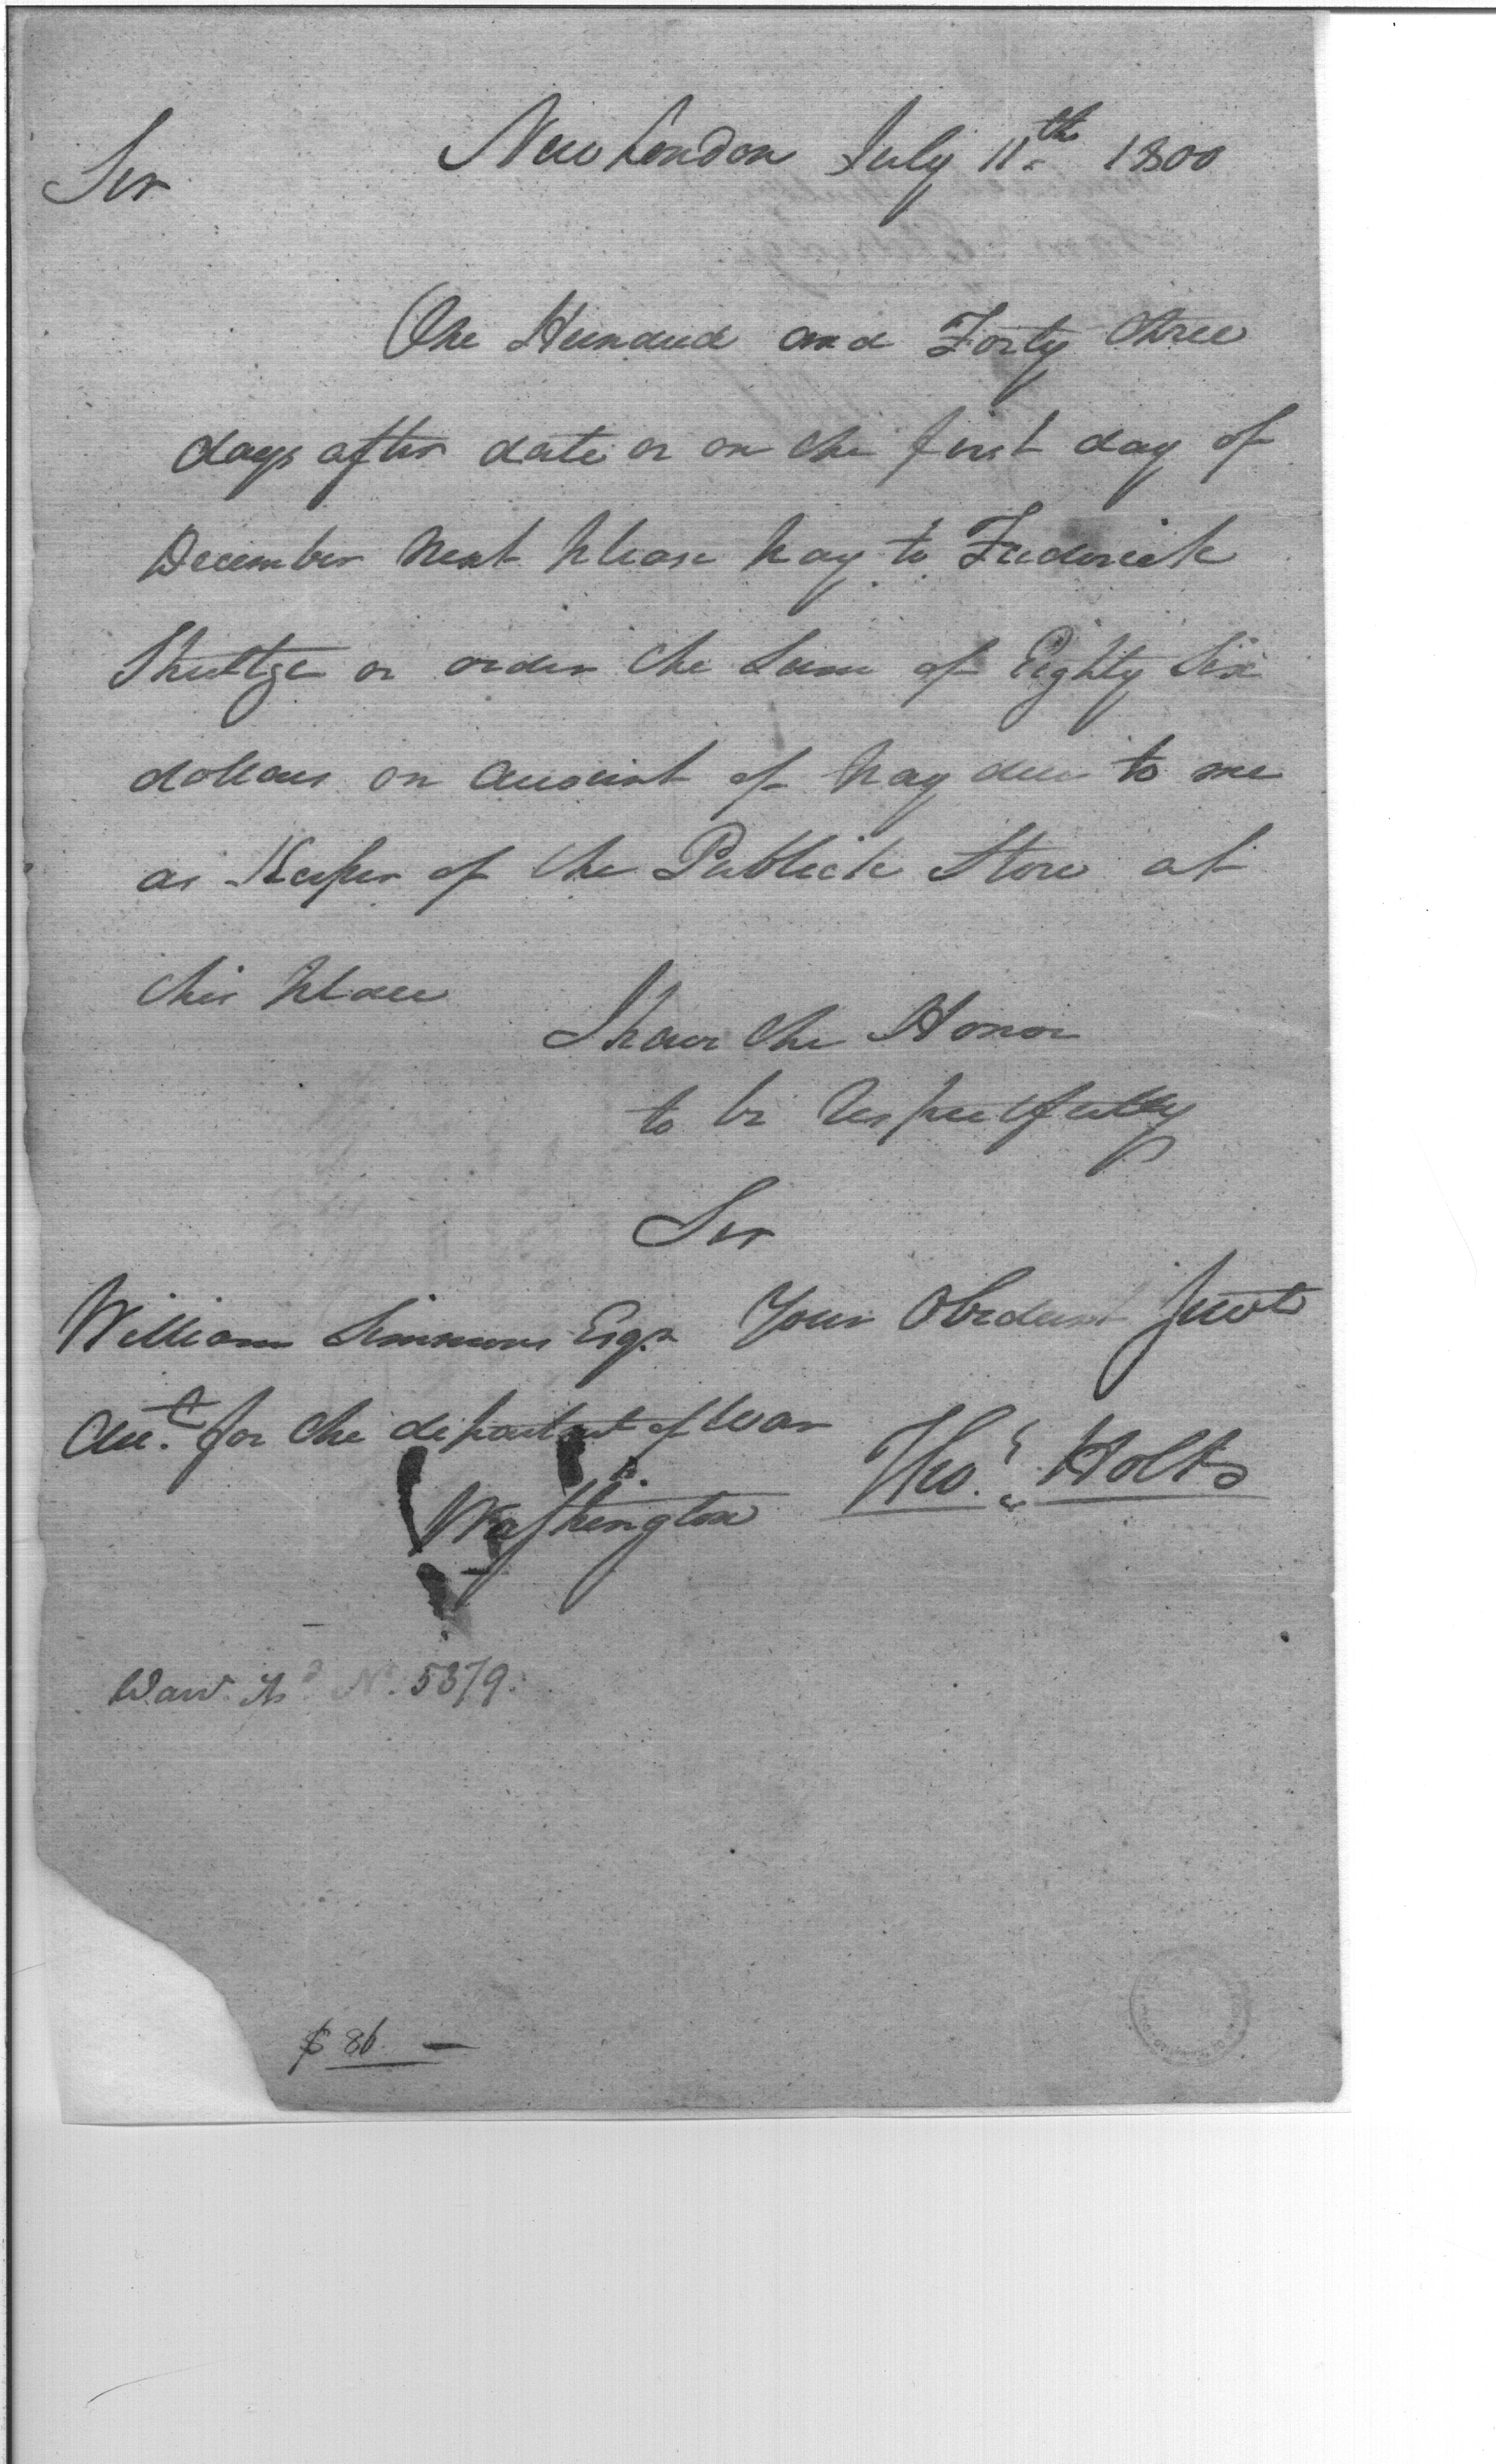 New London July 11th 1800
Sir
One Hundred and Forty three
days after date or on the first day of
December Next Please Pay to Frederick
Shultze or order the Sum of Eighty Six
dollars on account of Pay due to me
as Keeper of the Publick Store at
this Place
I have the Honor
to be Respectfully
Sir
William Simmons Esqr. Your Obedient Servt
Acct. for the department of War
Washington Thos. Holt
Warrt. Issd. No. 5379.
$ 86. —